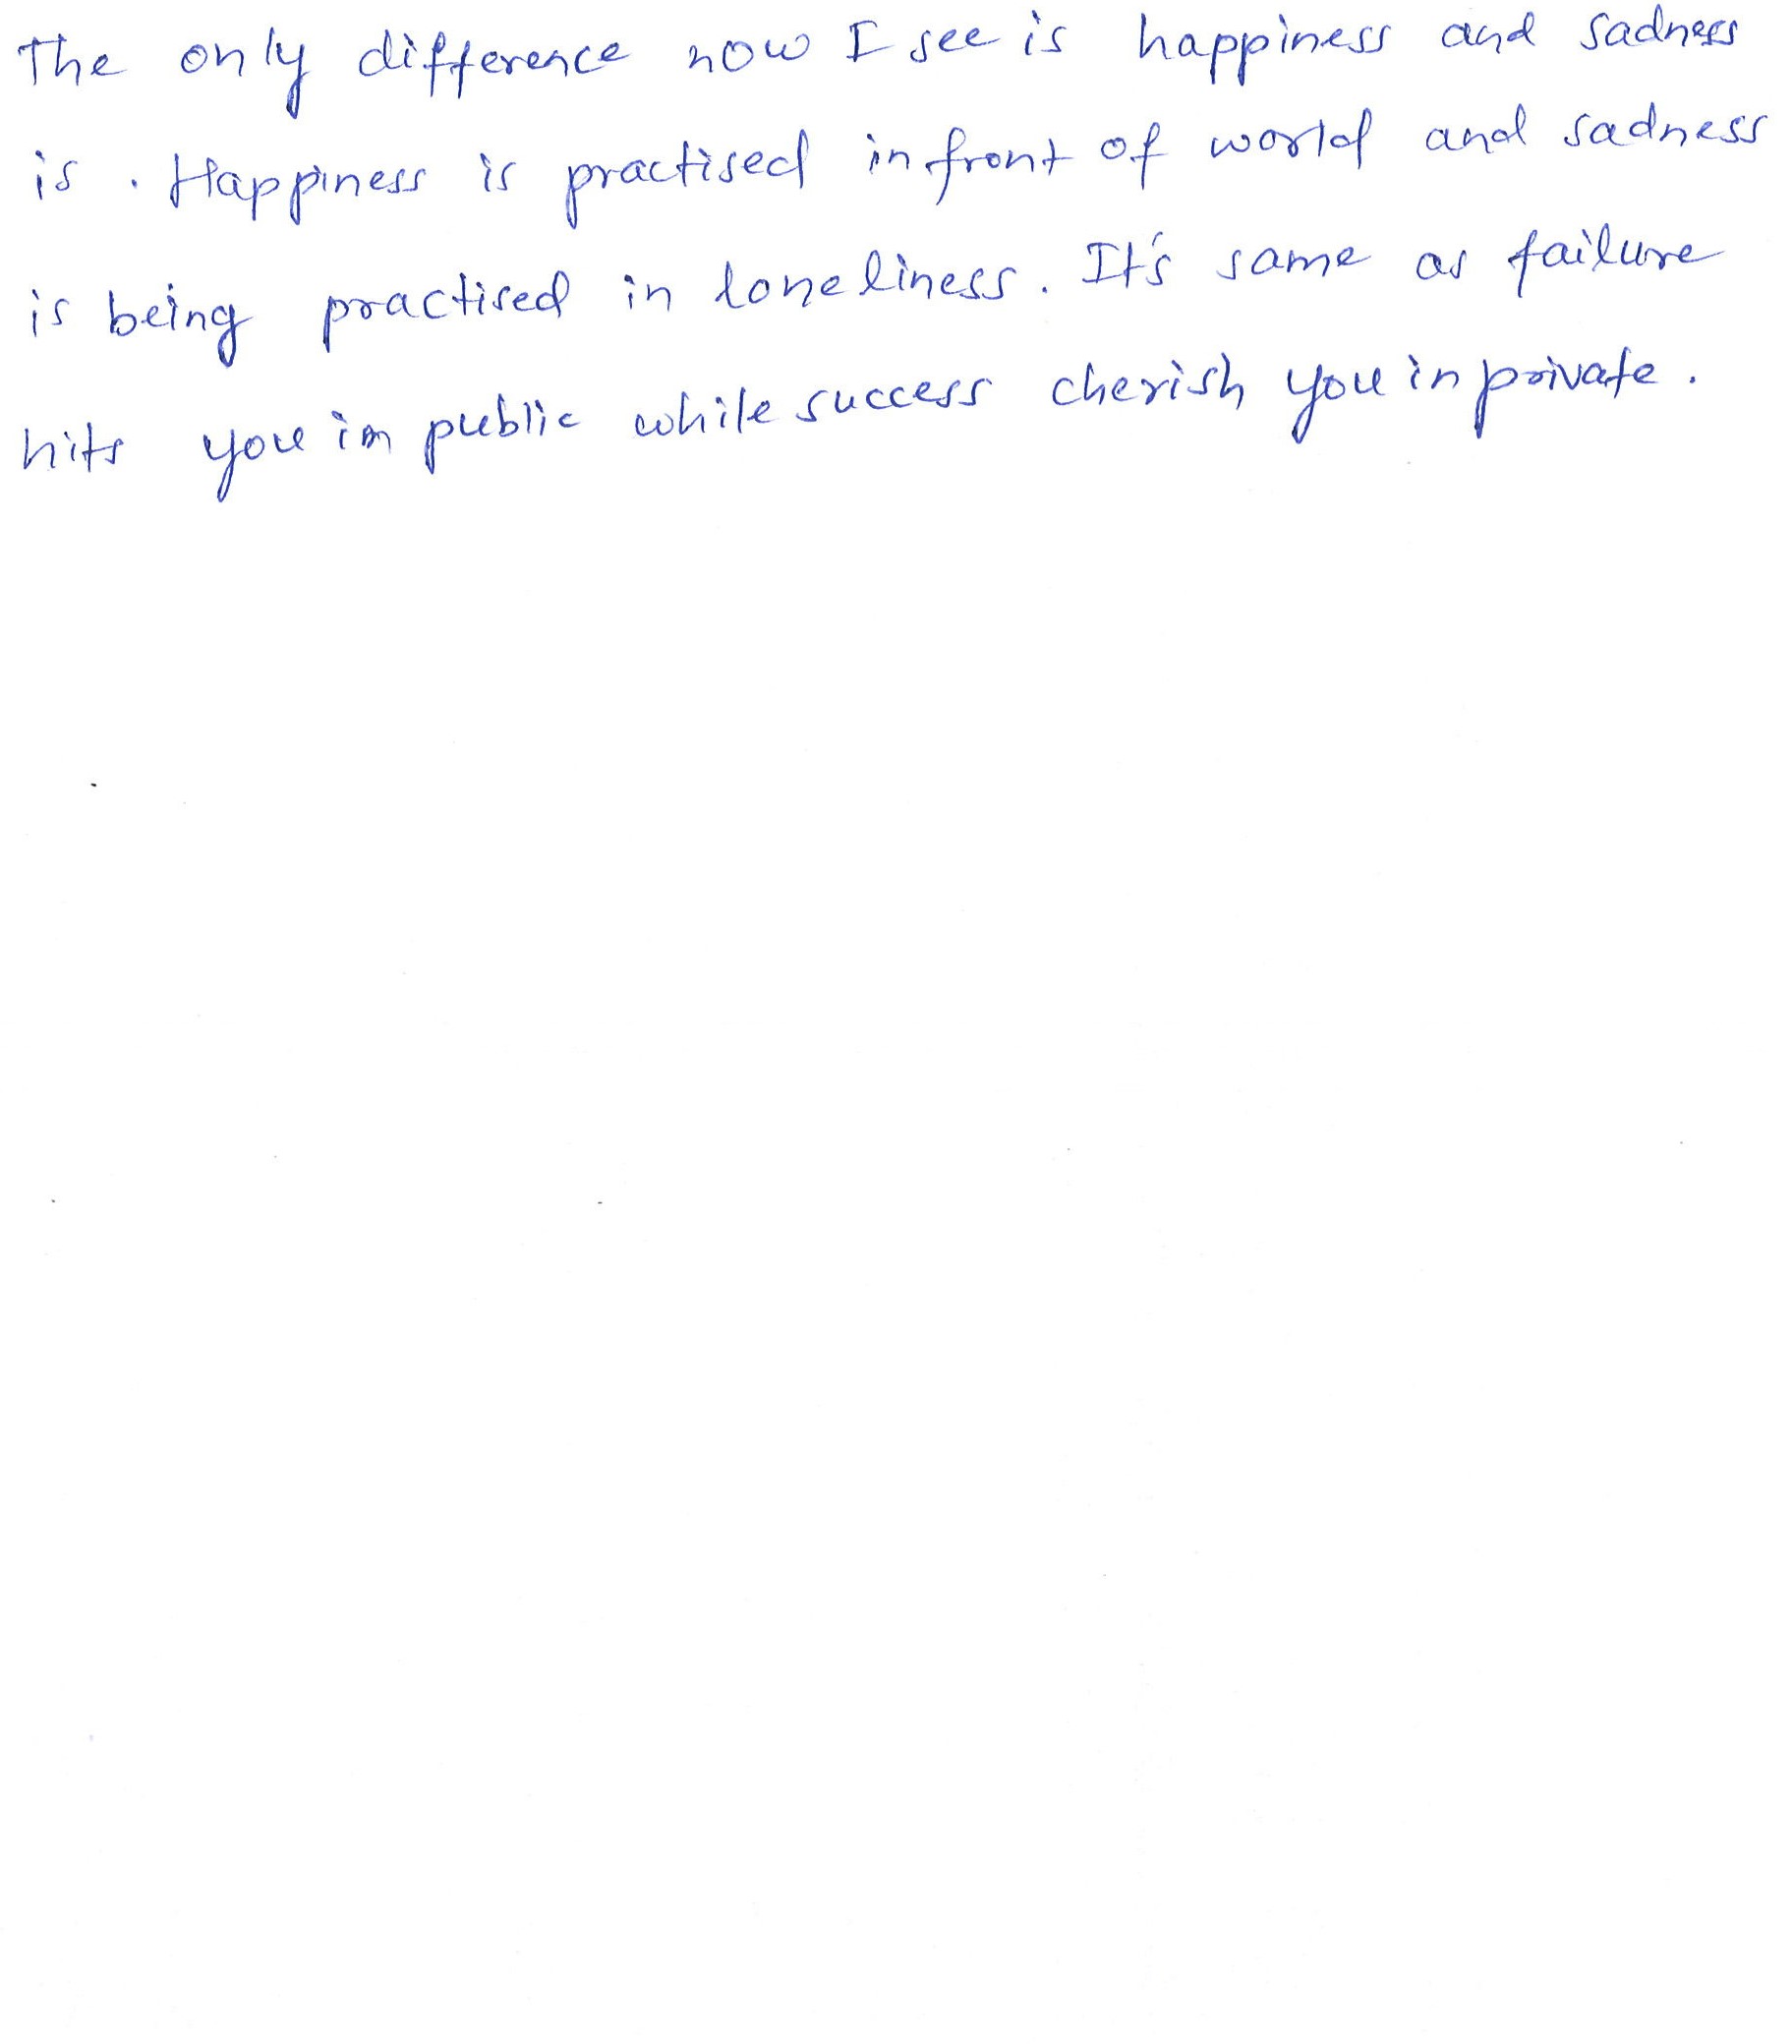 The only difference now I see is happiness and sadness
is . Happiness is practised in front of world and sadness
is being practised in loneliness. It's same as failure
hits you in public while success cherish you in private.